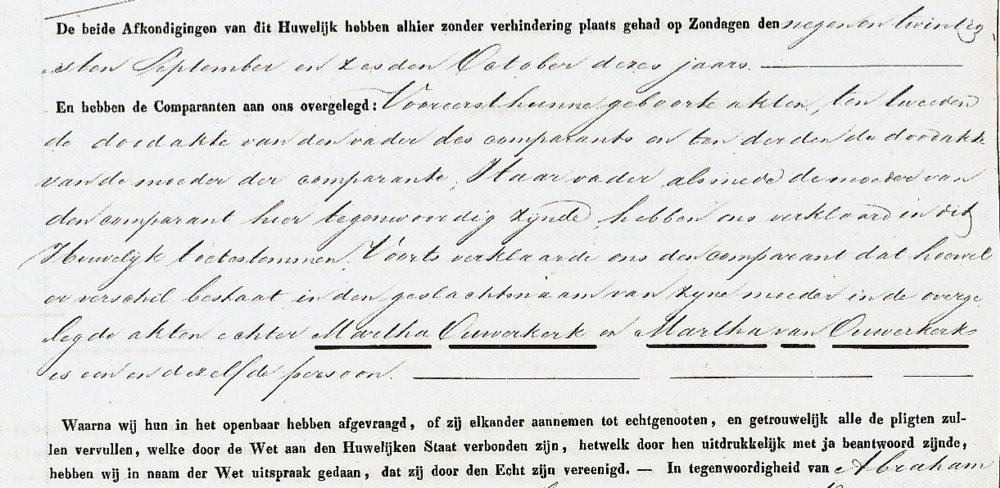 De beide Afkondigingen van dit Huwelijk hebben alhier zonder verhindering plaats gehad op Zondagen den negen en twintig
sten September en zesden October dezes jaars.
En hebben de Comparanten aan ons overgelegd: Vooreerst hunne geboorte akten, ten tweeden
de doodakte van den vader des comparants en ten derden de doodakte
van de moeder der comparante, Haar vader alsmede de moeder van
den comparant hier tegenwoordig zijnde, hebben ons verklaard in dit
Huwelijk toetestemmen. Voorts verklaarde ons den comparant dat hoewel
er verschil bestaat in den geslachtsnaam van zijne moeder in de overge
legde akten echter Martha Ouwerkerk en Martha van Ouwerkerk
is een en dezelfde persoon.
Waarna wij hun in het openbaar hebben afgevraagd, of zij elkander aannemen tot echtgenooten, en getrouwelijk alle de pligten zul-
len vervullen, welke door de Wet aan den Huwelijken Staat verbonden zijn, hetwelk door hen uitdrukkelijk met ja beantwoord zijnde,
hebben wij in naam der Wet uitspraak gedaan, dat zij door den Echt zijn vereenigd. — In tegenwoordigheid van Abraham